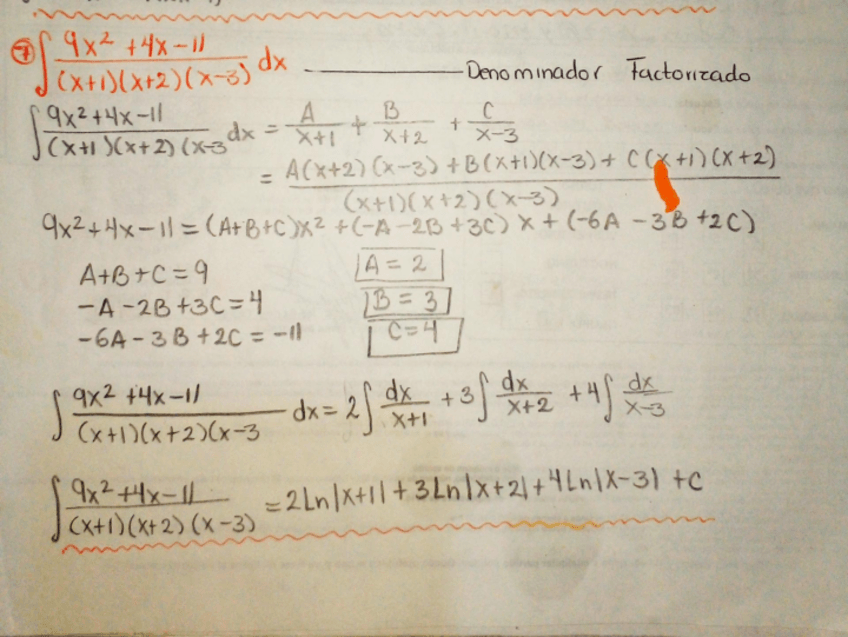 ⑦ ∫ 9x² + 4x - 11 / (x+1)(x+2)(x-3) dx ——— Denominador Factorizado
∫ 9x² + 4x - 11 / (x+1)(x+2)(x-3 dx = A / x+1 + B / x+2 + C / x-3
= A(x+2)(x-3) + B(x+1)(x-3) + C(x+1)(x+2) / (x+1)(x+2)(x-3)
9x² + 4x - 11 = (A+B+C)x² + (-A - 2B + 3C) x + (-6A - 3B + 2C)
A+B+C = 9
A = 2
-A - 2B + 3C = 4
B = 3
-6A - 3B + 2C = -11
C = 4
∫ 9x² + 4x - 11 / (x+1)(x+2)(x-3 dx = 2∫ dx / x+1 + 3∫ dx / x+2 + 4∫ dx / x-3
∫ 9x² + 4x - 11 / (x+1)(x+2)(x-3) = 2Ln|x+1| + 3Ln|x+2| + 4Ln|x-3| + C